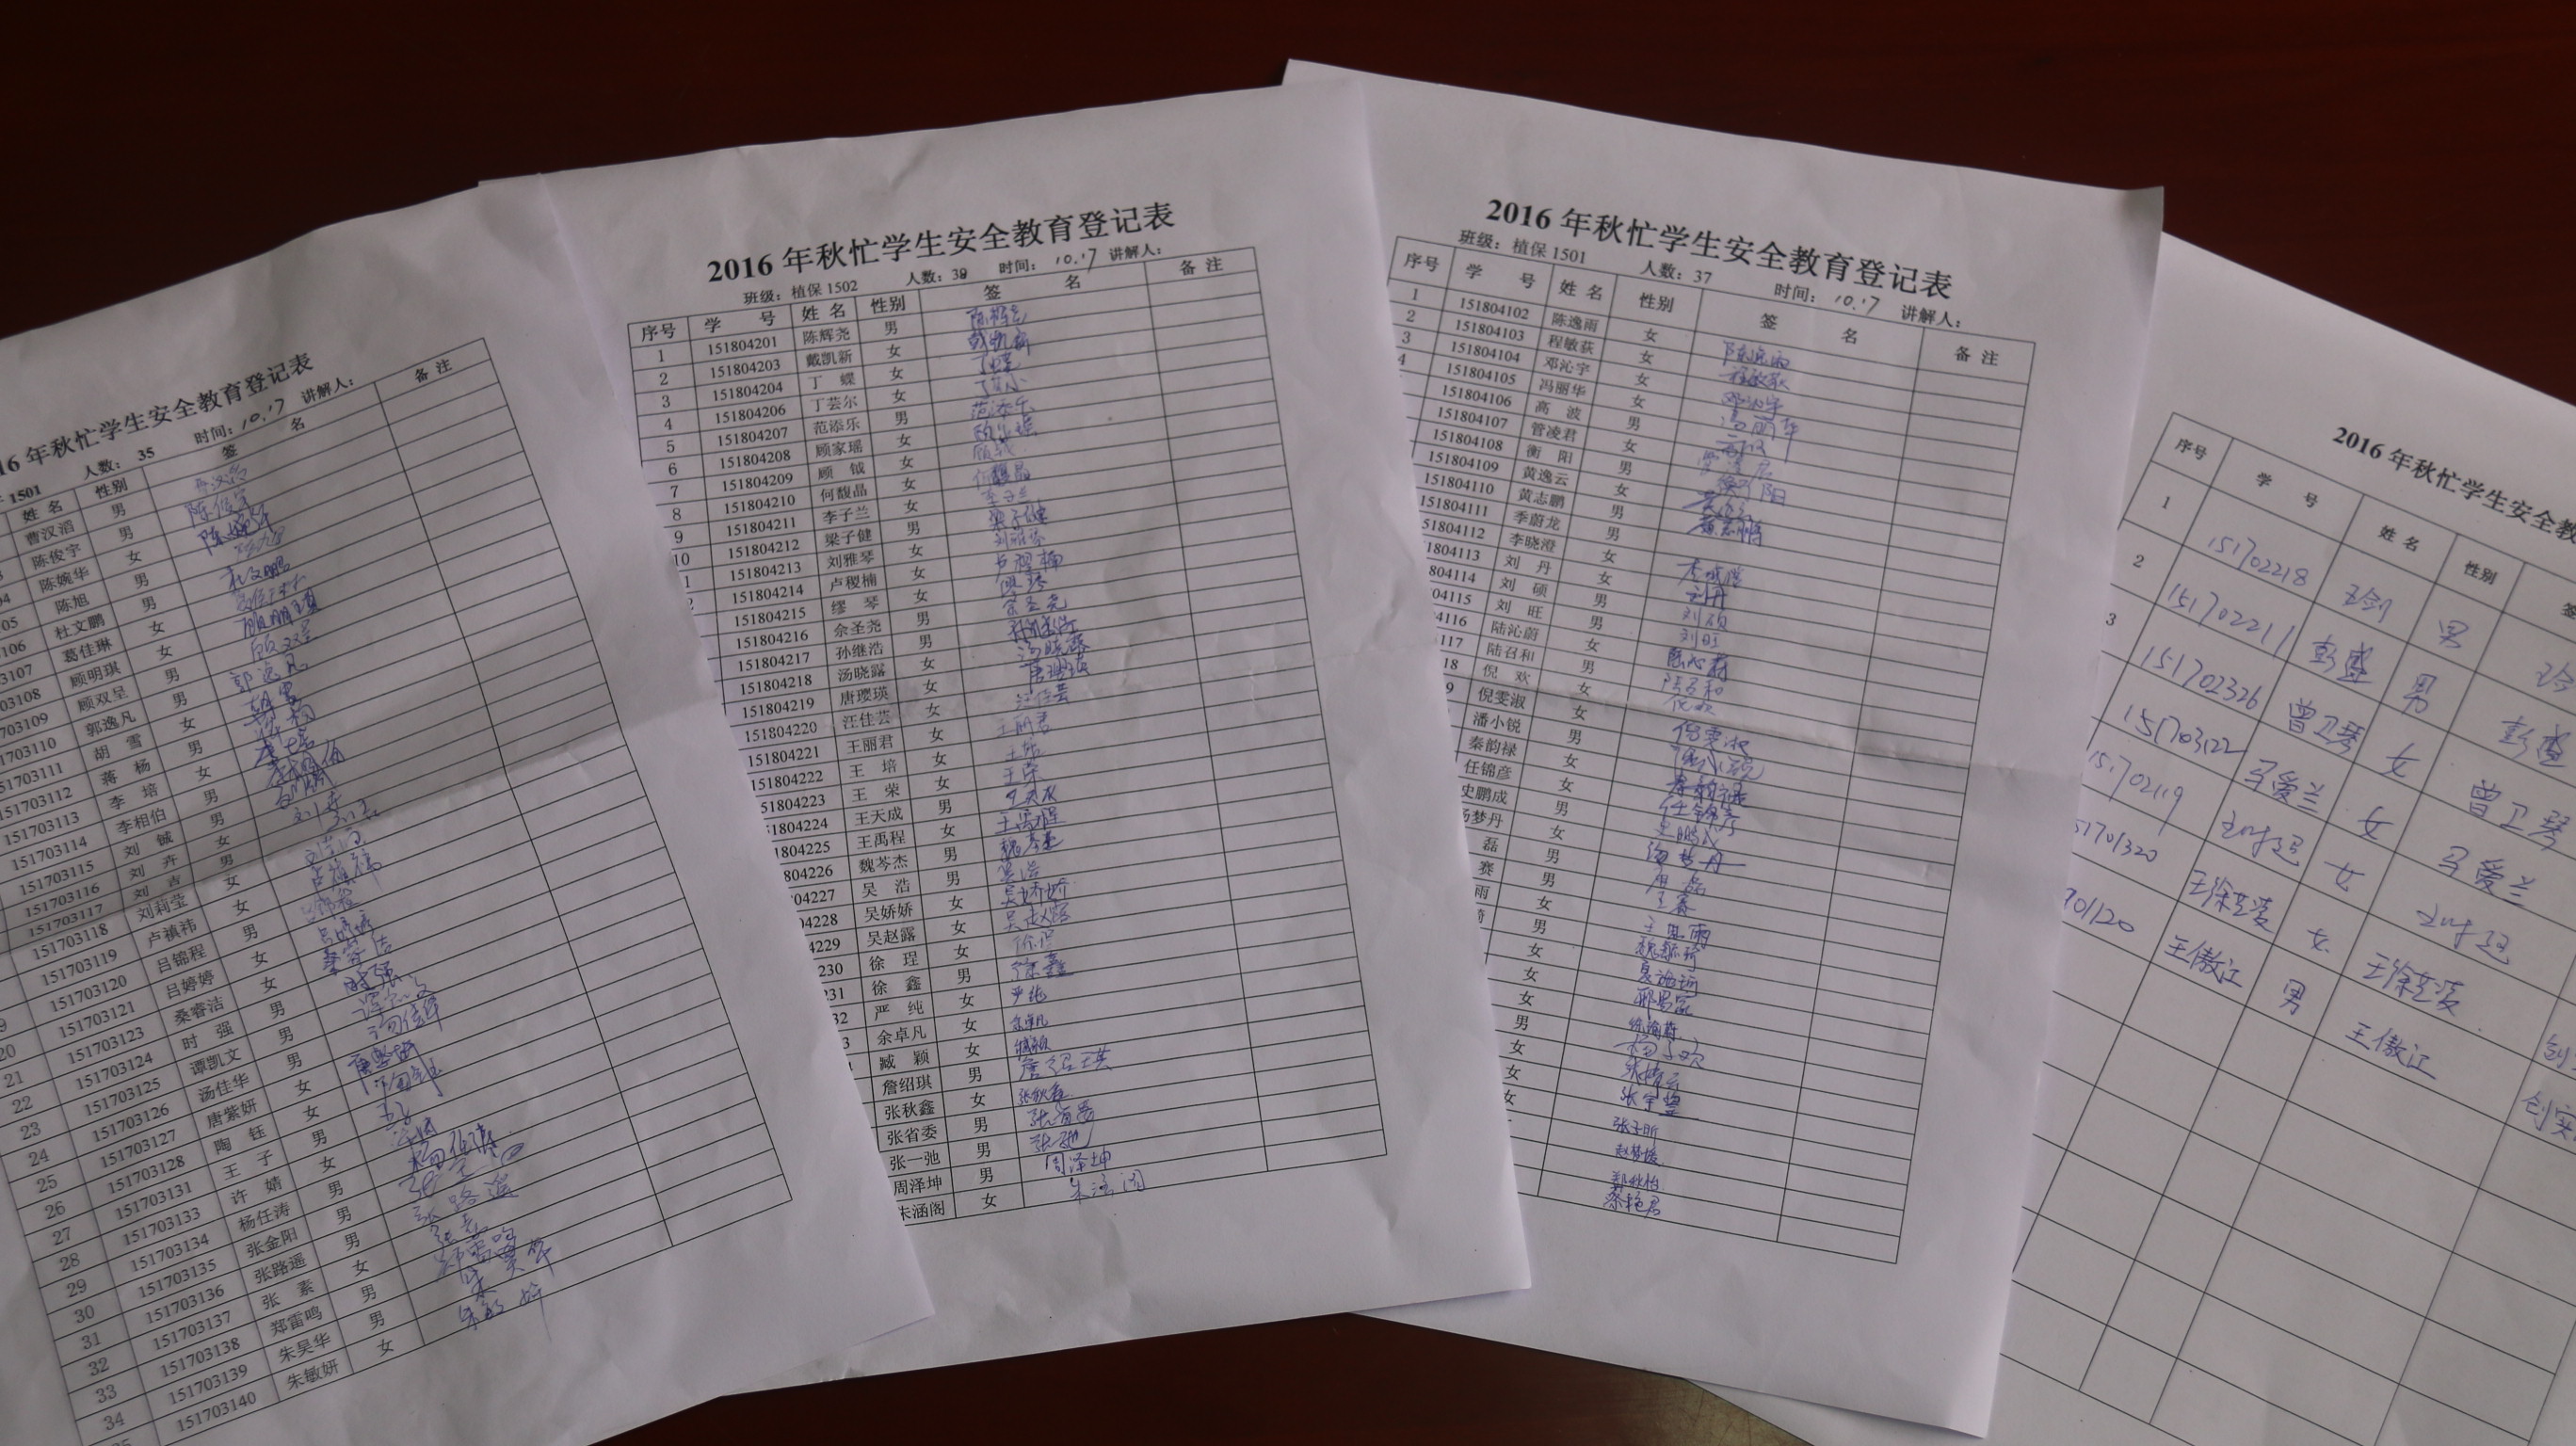 16 年秋忙学生安全教育登记表
1501 人数: 35 时间: 10.17 讲解人:
姓 名 性别 签 名 备 注
曹汉滔 男
陈俊宇 男 陈俊宇
陈婉华 女 陈婉华
04 陈旭 男
05 杜文鹏 男 杜文鹏
106 葛佳琳 女
3107 顾明琪 女 顾明琪
03108 顾双呈 男 顾双呈
703109 郭逸凡 男 郭逸凡
703110 胡 雪 女 胡雪
1703111 蒋 杨 男 蒋杨
51703112 李 培 女 李培
151703113 李相伯 男 李相伯
151703114 刘 铖 男
151703115 刘 卉 女
151703116 刘 吉 男
151703117 刘莉莹 女
151703118 卢禛祎 女
151703119 吕锦程 男
20 151703120 吕婷婷 女
21 151703121 桑睿洁 女
22 151703123 时 强 男 时强
23 151703124 谭凯文 男
24 151703125 汤佳华 男 汤佳华
25 151703126 唐紫妍 女
26 151703127 陶 钰 女 陶钰
27 151703128 王 子 男 王子
28 151703131 许 婧 女
29 151703133 杨任涛 男 杨任涛
30 151703134 张金阳 男
31 151703135 张路遥 男 张路遥
32 151703136 张 素 女 张素
33 151703137 郑雷鸣 男 郑雷鸣
34 151703138 朱昊华 男
151703139 朱敏妍 女 朱敏妍
151703140
2016 年秋忙学生安全教育登记表
班级: 植保 1502 人数: 38 时间: 10.17 讲解人:
序号 学 号 姓 名 性别 签 名 备 注
1 151804201 陈辉尧 男 陈辉尧
2 151804203 戴凯新 女 戴凯新
3 151804204 丁 蝶 女 丁蝶
4 151804206 丁芸尔 女
5 151804207 范添乐 男 范添乐
6 151804208 顾家瑶 女 顾家瑶
7 151804209 顾 钺 女 顾钺
8 151804210 何馥晶 女 何馥晶
9 151804211 李子兰 女 李子兰
10 151804212 梁子健 男 梁子健
1 151804213 刘雅琴 女 刘雅琴
2 151804214 卢稷楠 女 卢稷楠
151804215 缪 琴 女 缪琴
151804216 佘圣尧 男 佘圣尧
151804217 孙继浩 男 孙继浩
151804218 汤晓露 女 汤晓露
151804219 唐璎瑛 女 唐璎瑛
151804220 汪佳芸 女 汪佳芸
151804221 王丽君 女 王丽君
151804222 王 培 女 王培
51804223 王 荣 女 王荣
1804224 王天成 男 王天成
804225 王禹程 女 王禹程
804226 魏芩杰 男 魏芩杰
04227 吴 浩 男 吴浩
04228 吴娇娇 女 吴娇娇
4229 吴赵露 女 吴赵露
230 徐 珵 女 徐珵
231 徐 鑫 男 徐鑫
32 严 纯 女 严纯
3 余卓凡 女 余卓凡
臧 颖 女 臧颖
詹绍琪 男 詹绍琪
张秋鑫 女 张秋鑫
张省委 男 张省委
张一弛 男 张一弛
周泽坤 男 周泽坤
朱涵阁 女 朱涵阁
2016 年秋忙学生安全教育登记表
班级: 植保 1501 人数: 37 时间: 10.17 讲解人:
序号 学 号 姓 名 性别 签 名 备 注
1 151804102 陈逸雨 女 陈逸雨
2 151804103 程敏荻 女 程敏荻
3 151804104 邓沁宇 女 邓沁宇
4 151804105 冯丽华 男 冯丽华
151804106 高 波 女 高波
151804107 管凌君 男 管凌君
151804108 衡 阳 女 衡阳
151804109 黄逸云 男 黄逸云
151804110 黄志鹏 男 黄志鹏
151804111 季蔚龙 女
51804112 李晓澄 女 李晓澄
1804113 刘 丹 男 刘丹
804114 刘 硕 男 刘硕
04115 刘 旺 女 刘旺
4116 陆沁蔚 男 陆沁蔚
117 陆召和 女 陆召和
18 倪 欢 女 倪欢
9 倪雯淑 男 倪雯淑
潘小锐 女 潘小锐
秦韵禄 女 秦韵禄
任锦彦 男 任锦彦
史鹏成 女 史鹏成
汤梦丹 男 汤梦丹
磊 男
赛 女 王赛
雨 男 王思雨
女
女
女
男
女 杨子欢
女
女 张宇莹
张子昕
赵梦媛
郑秋怡
蔡艳君
2016 年秋忙学生安全教
序号 学 号 姓 名 性别 签
1 151702218 王剑 男
2 151702211 彭蛰 男 彭蛰
3 151702326 曾卫琴 女 曾卫琴
151703122 马爱兰 女 马爱兰
151702119 女
51701320 王徐芝凌 女 王徐芝凌
701120 王傲江 男 王傲江